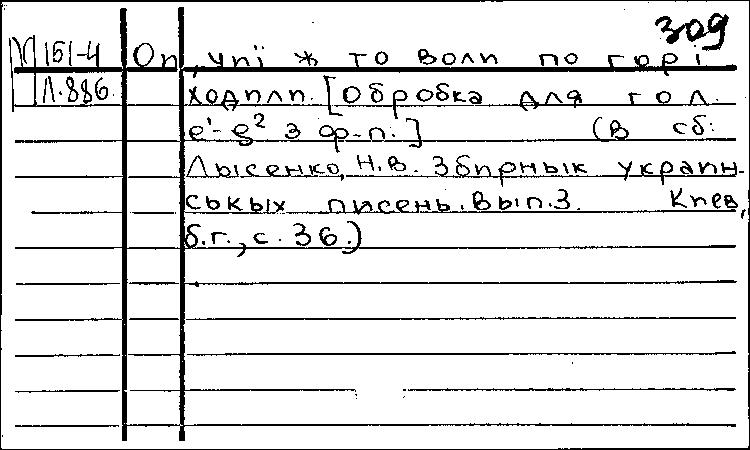 309
М151-4 Ой, чиї ж то воли по горі
Л.886 ходили. [Обробка для гол.
e¹-g² з ф-п.] (В сб:
Лысенко, Н.В. Збирнык украин-
ськых писень. Вып.3. Киев,
б.г., с. 36.)